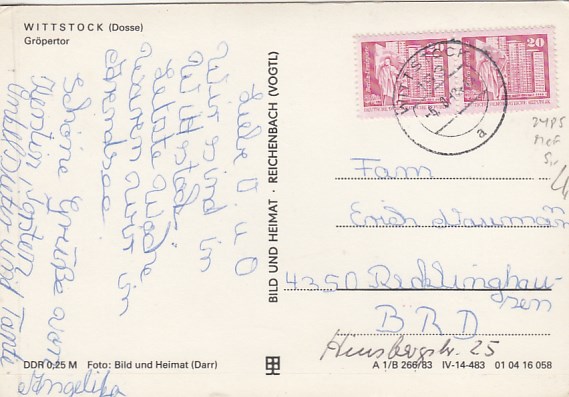 WITTSTOCK (Dosse)
Gröpertor
Liebe O. u. O
Wir sind in
Wittstock.
Letzte Woche
waren wir in
Schöne Grüße von
Onkel Dieter und Tante
Angelika
BILD UND HEIMAT · REICHENBACH (VOGTL)
20
20
WITTSTOCK
a
2485
MeF
Fam
Erich Naumann
4350 Recklinghau-
sen
BRD
Hinsbergstr. 25
DDR 0,25 M Foto: Bild und Heimat (Darr)
A 1/B 266/83 IV-14-483 01 04 16 058